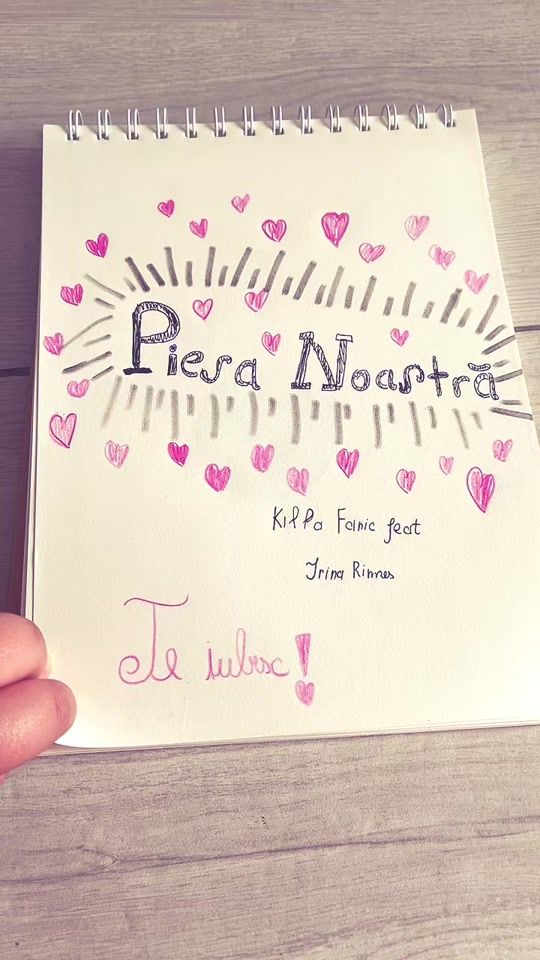 Piesa Noastră
Killa Fonic feat
Irina Rimes
Te iubesc!